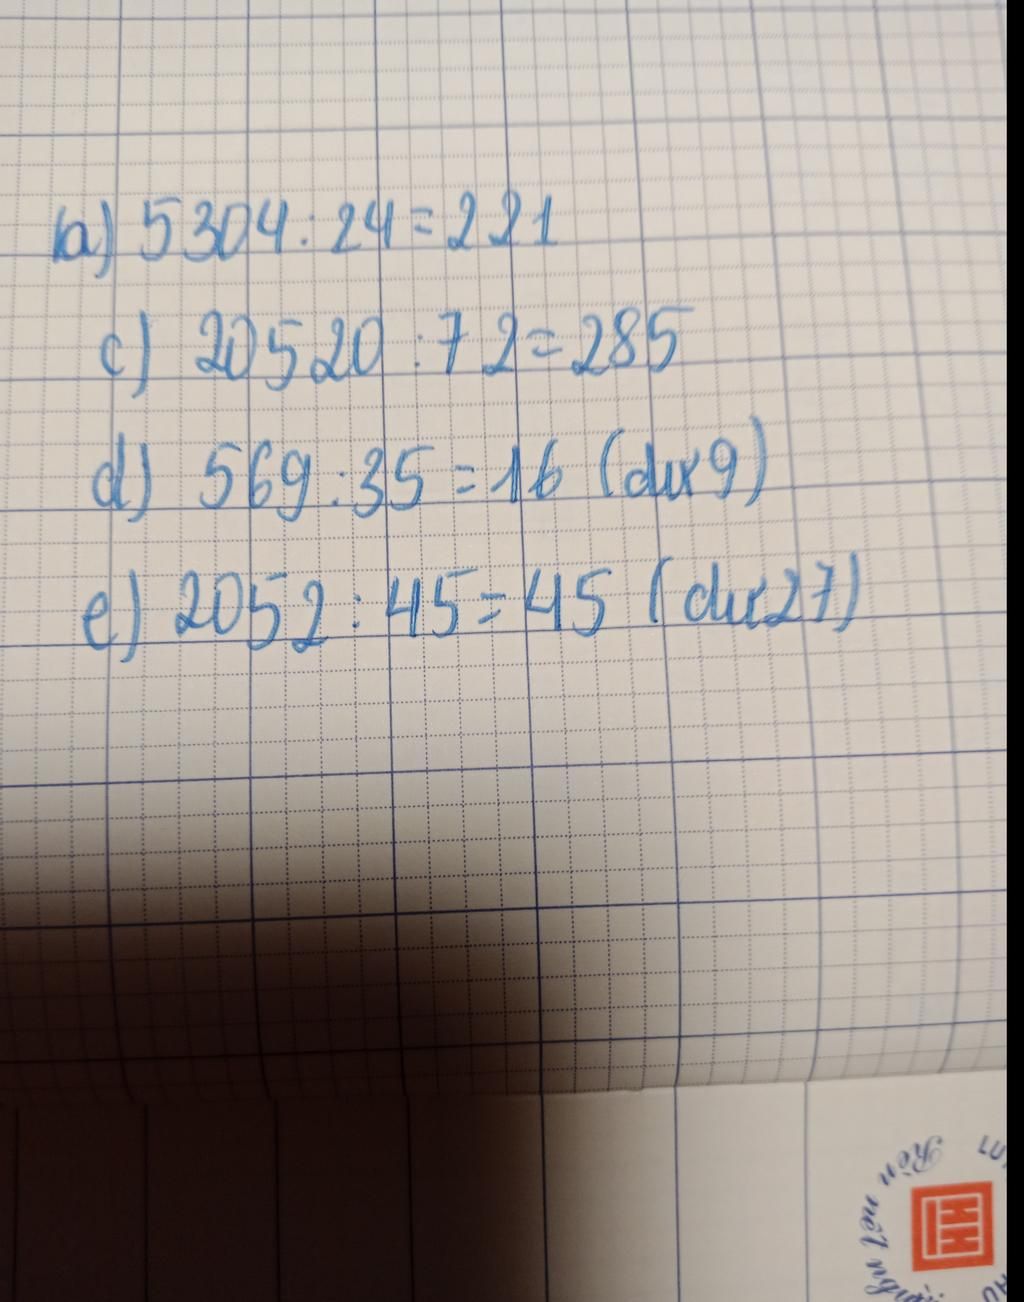 a) 5304 : 24 = 221
c) 20520 : 72 = 285
d) 569 : 35 = 16 (dư 9)
e) 2052 : 45 = 45 (dư 27)
Rèn nét